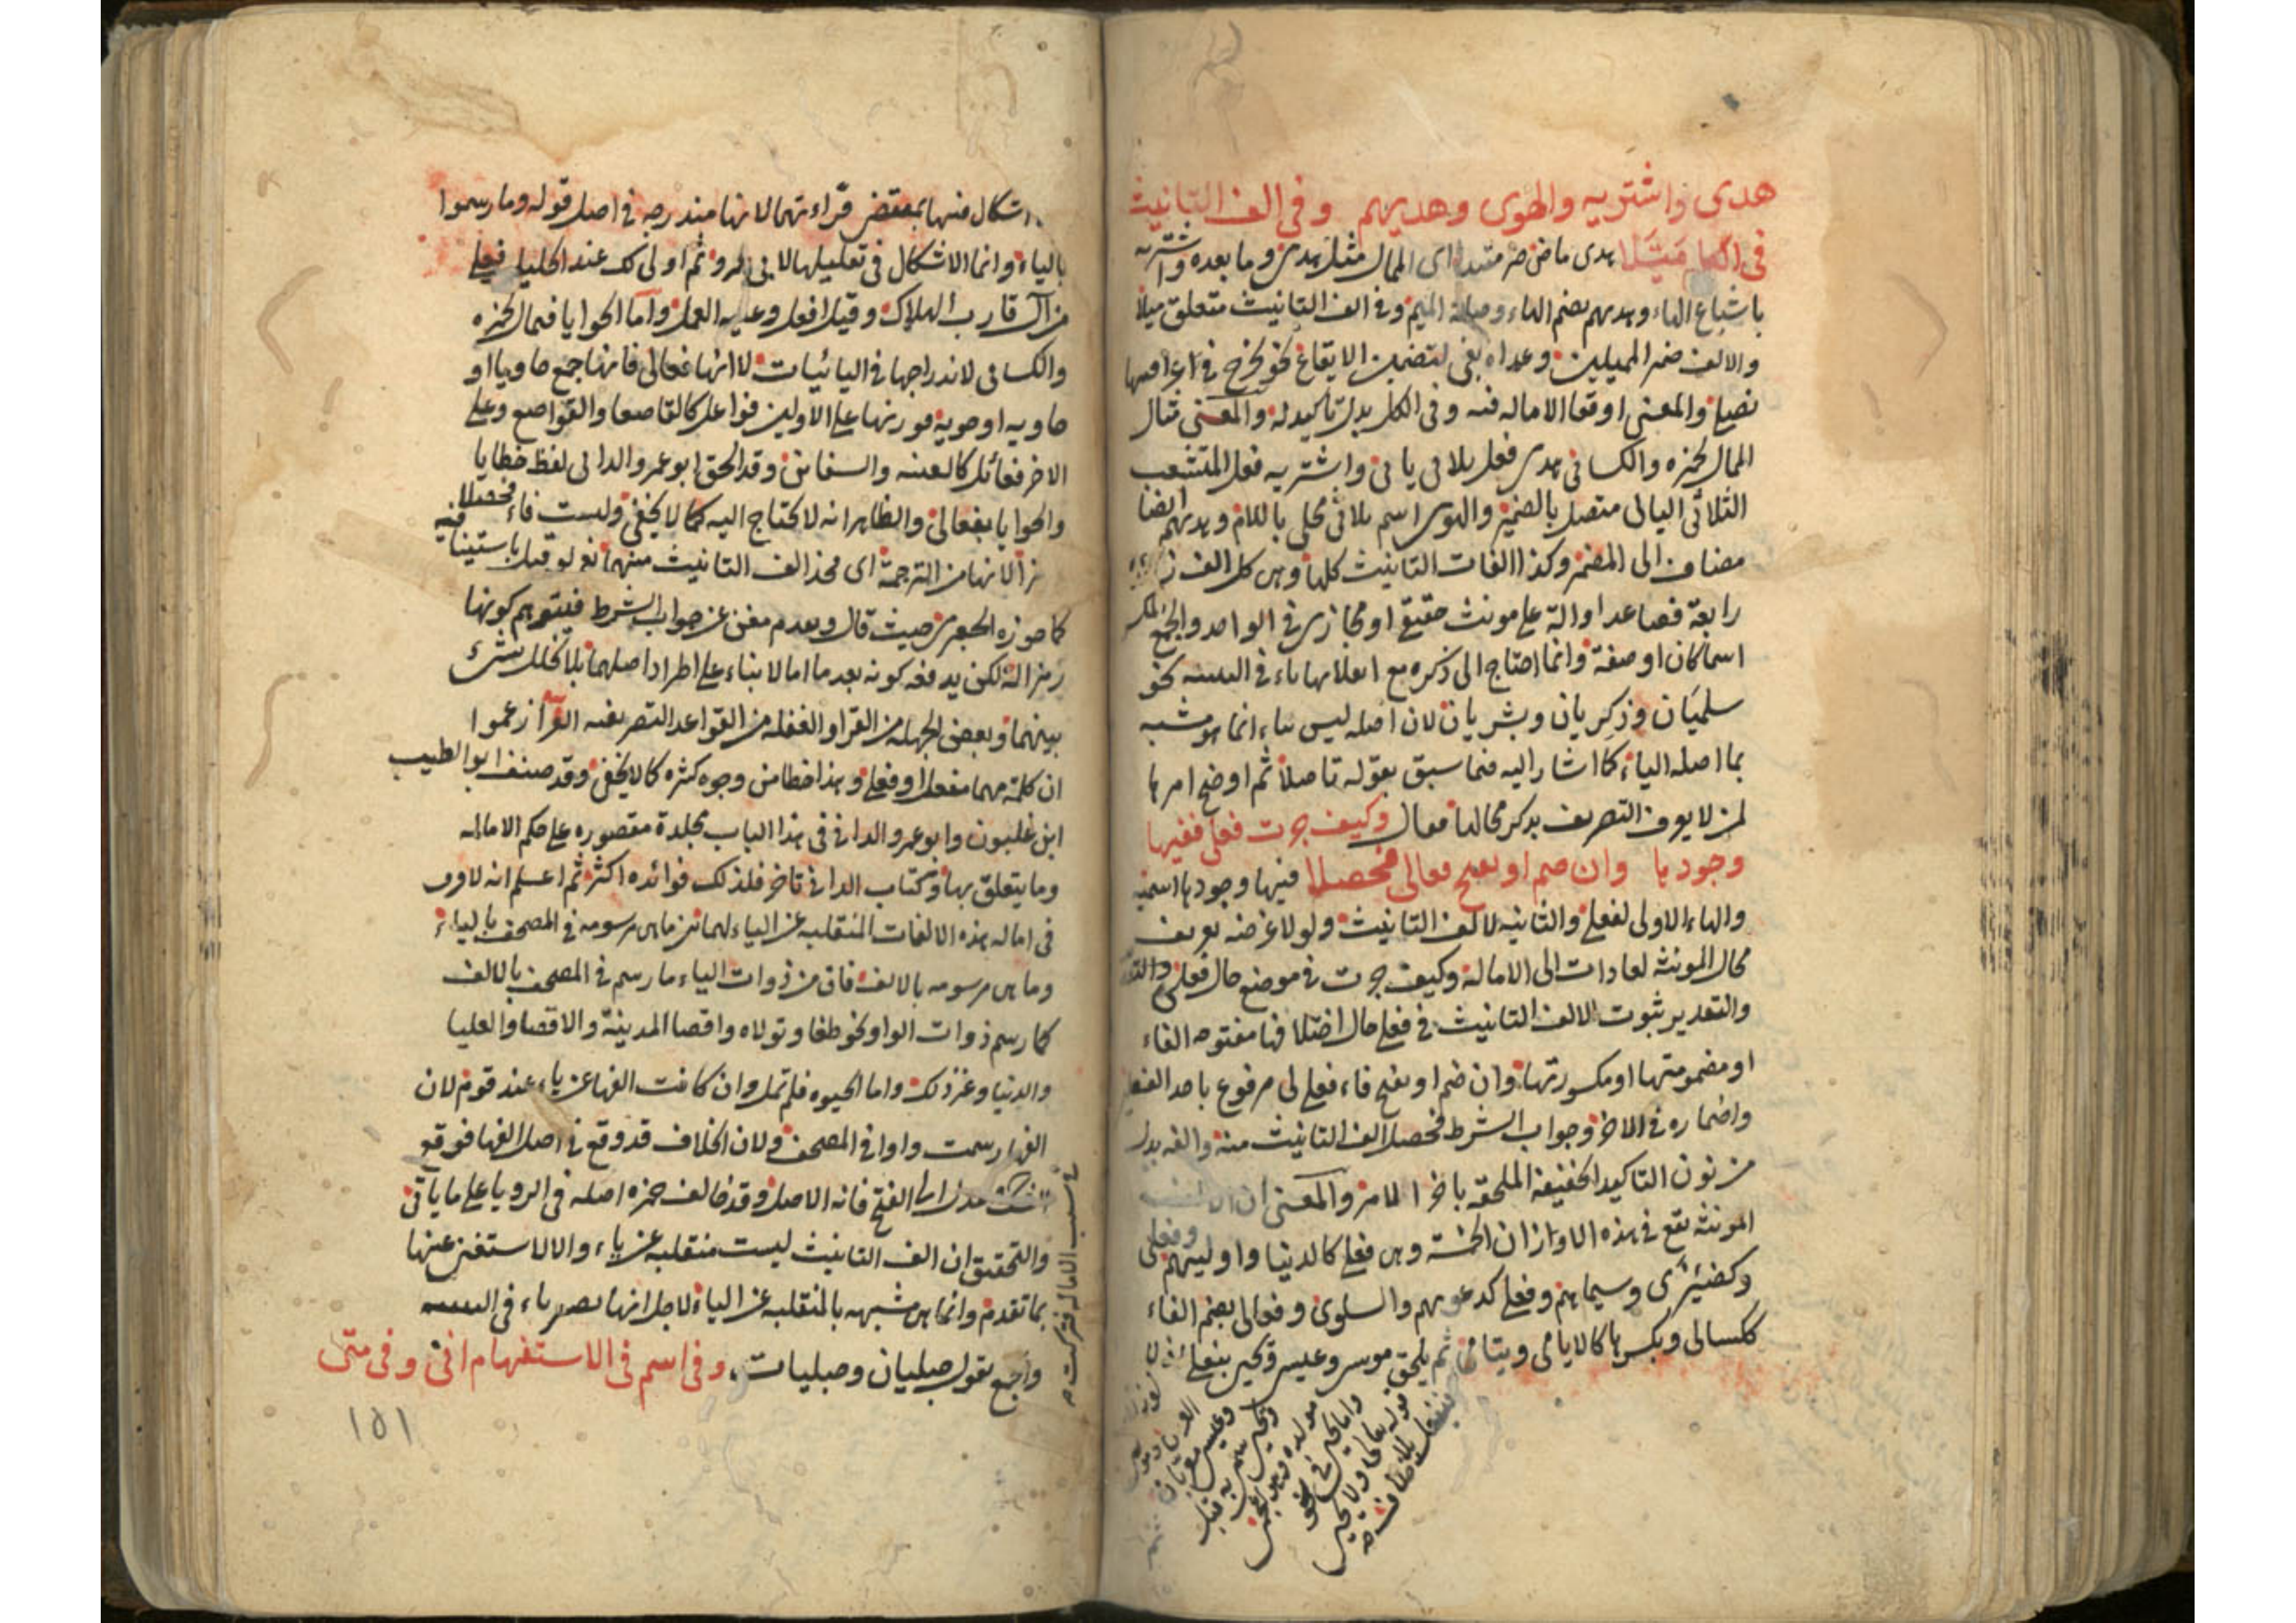 هدى واشتريه والهوى وهديهم وفي الف التانيث
في الكل ميلا هدى ماض خبر مبتدا اى الممال مثل هدى وما بعده واشتريه
باشباع الهاء وهديهم بضم الهاء وصلة الميم وفي الف التانيث متعلق ميلا
والالف ضمير المميلين وعداه بفى لتضمين الايقاع نحو يجرح في عراقيبها
نصلى والمعنى اوقعا الاماله فيه وفى الكل بدل تاكيد له والمعنى مثال
الممال لحمزه والكسائى هدى فعل ثلاثى يائى واشتريه فعل المتشعب
الثلاثى اليائى متصل بالضمير والهوى اسم ثلاثى محلى باللام وهديهم ايضا
مضاف الى المضمر وكذا الفات التانيث كلها وهى كل الف زايدة
رابعة فصاعدا دالة على مونث حقيقى او مجازى فى الواحد والجمع المكسر
اسما كان او صفة وانما احتاج الى ذكره مع انقلابها ياء فى التثنيه نحو
سلميان وذكريان وبشريان لان اصله ليس ياء انما هو مشبه
بما اصله الياء كما اشار اليه فيما سبق بقوله تاصلا ثم اوضح امرها
لمن لا يعرف التصريف بذكر محالها فقال وكيف جرت فعلى ففيها
وجودها وان ضم او يفتح فعالى فحصلا فيها وجودها اسميه
والهاء الاولى لفعلى والثانيه لالف التانيث ولولا غرضه تعريف
محال المونثه لعادات الى الامالة وكيف جرت فى موضع حال فعلى
والتقدير ثبوت الالف التانيث فى فعلى حال اختلافها مفتوحه الفاء
او مضمومتها او مكسورتها وان ضم او يفتح فاء فعلى لى مرفوع باحد الفعلين
واضماره فى الاخر وجواب الشرط فحصلا الف التانيث منه والفه بدل
من نون التاكيد الخفيفه الملحقه باخر الامر والمعنى ان الالف
المونثه تقع فى هذه الاوزان الخمسه وهى فعلى كالدنيا واوليهم وفعلى
وكضيزى وسيماهم وفعلى كدعويهم والسلوى وفعالى بضم الفاء
ككسالى وبكسرها كالايامى ويتامى ثم يلحق موسى وعيسى ويحيى بفعلى
اشكال فيها بمقتضى قراءتهما لانها مندرجه فى اصل قوله وما رسموا
بالياء وانما الاشكال فى تعليلها ثم اولى لك عند الخليل فعلى
من آل قارب الهلاك وقيل افعل وعليه العمل واما الحوايا فممال لحمزه
والكسائى لاندراجها فى اليائيات لا انها فعالى فانها جمع حاويا او
حاويه او حوية فوزنها على الاولين فواعل كالقاصعا والقواصع وعلى
الاخر فعائل كالسفينه والسفاين وقد الحق ابو عمرو الدانى لفظ خطايا
والحوايا بفعالى والظاهر انه لا يحتاج اليه كما لا يخفى وليست فاء فحصلا فيه
رمزا لانها من الترجمة اى فخذ الف التانيث منهما نعم لو قيل باستينا
كما جوزه الجعبرى حيث قال وبعدم مغن عن جواب الشرط فيتوهم كونها
رمزا له لكن يدفعه كونه بعد ما امالا بناء على اطراد اصلهما بلا تخلل شىء
بينهما وبعض الجهله من القرا والغفله من القواعد التصريفيه القرآ زعموا
ان كلمة مهما مفعل او فعلى وهذا خطا من وجوه كثيره كما لا يخفى وقد صنف ابو الطيب
ابن غلبون وابو عمرو الدانى فى هذا الباب مجلدة مقصوره على حكم الاماله
وما يتعلق بها وكتاب الدانى تاخر فلذلك فوائده اكثر ثم اعلم انه لا فرق
فى اماله هذه الالفات المنقلبه عن الياء لهما بين ما هى مرسومه فى المصحف بالياء
وما هى مرسومه بالالف فان من ذوات الياء ما رسم فى المصحف بالالف
كما رسم ذوات الواو نحو طغا وتولاه واقصا المدينة والاقصا والعليا
والدنيا وغير ذلك واما الحيوه فلم تمل وان كانت الفها عن ياء عند قوم لان
الفها رسمت واوا فى المصحف ولان الخلاف قد وقع فى اصل الفها فوقع
الشك فعدل الى الفتح فانه الاصل وقد خالف حمزه اصله فى الرويا على ما ياتى
والتحقيق ان الف التانيث ليست منقلبه عن ياء والا لاستغنى عنها
بما تقدم وانما هى مشبهه بالمنقلبه عن الياء لاجل انها تصير ياء فى التثنيه
واجمع تقول حبليان وحبليات وفى اسم فى الاستفهام انى وفى متى
١٥١